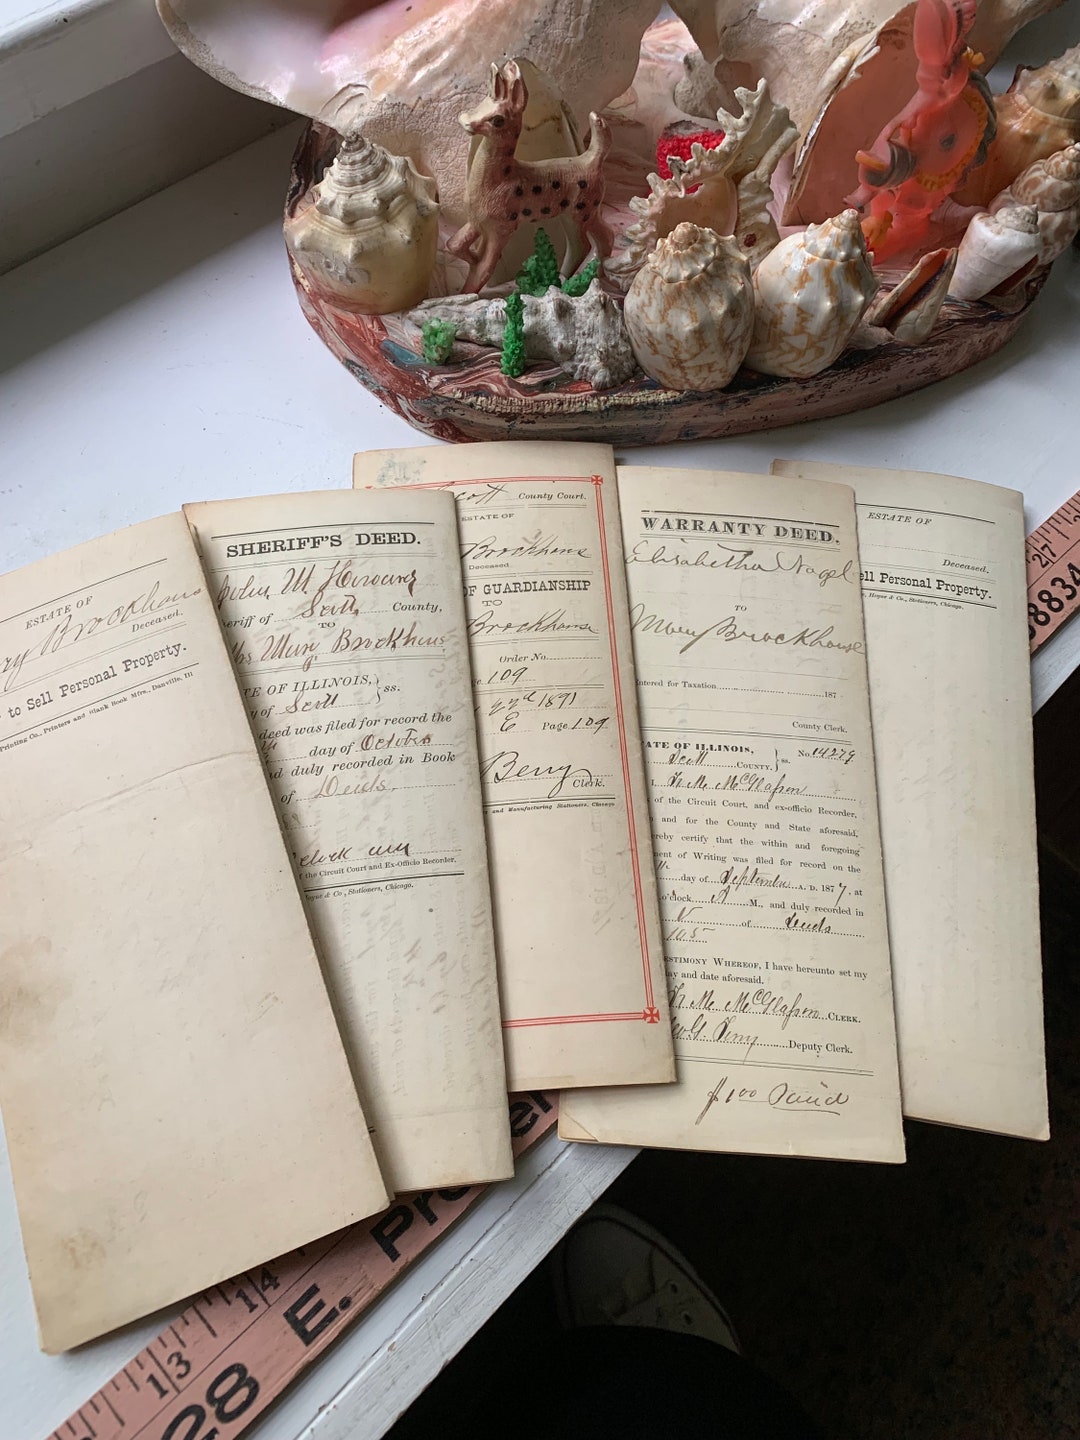 ESTATE OF
Brockhaus
Deceased.
to Sell Personal Property.
Printing Co., Printers and Blank Book Mfrs., Danville, Ill
SHERIFF'S DEED.
John M
eriff of Scott County,
TO
Mary Brockhaus
TE OF ILLINOIS, } ss.
y of Scott
deed was filed for record the
day of October
d duly recorded in Book
of Deeds.
o'clock
f the Circuit Court and Ex-Officio Recorder.
Hayne & Co., Stationers, Chicago.
cott County Court.
ESTATE OF
Brockhause
Deceased
OF GUARDIANSHIP
TO
Brockhause
Order No.
109
22d 1891
E Page 109
Berry
Clerk.
and Manufacturing Stationers, Chicago
WARRANTY DEED.
Elisabetha Nagel
TO
Mary Brockhause
Entered for Taxation 187
County Clerk.
ATE OF ILLINOIS, } ss. No. 14279
Scott COUNTY.
McGlasson
of the Circuit Court, and ex-officio Recorder,
and for the County and State aforesaid,
ereby certify that the within and foregoing
ment of Writing was filed for record on the
day of September A. D. 1877, at
o'clock A M., and duly recorded in
V of Deeds
105
ESTIMONY WHEREOF, I have hereunto set my
ay and date aforesaid.
McGlasson CLERK.
Deputy Clerk.
$1.00 Paid
ESTATE OF
Deceased.
ell Personal Property.
Hayne & Co., Stationers, Chicago.
27
8834
14
13
E. Pr
er
28